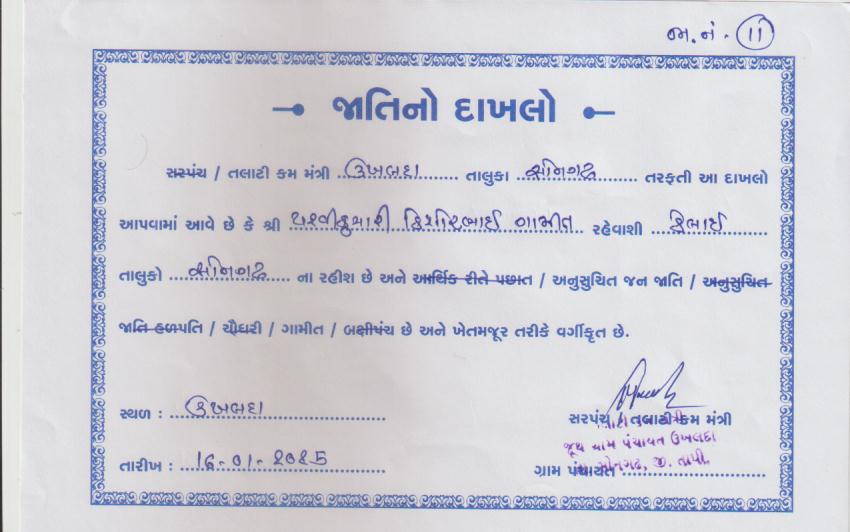 જા.નં - 11
જાતિનો દાખલો
સરપંચ / તલાટી કમ મંત્રી ઉખલદા તાલુકા સોનગઢ તરફતી આ દાખલો
આપવામાં આવે છે કે શ્રી પલ્વીકુમારી કિશોરભાઈ ગામીત રહેવાશી
તાલુકો સોનગઢ ના રહીશ છે અને આર્થિક રીતે પછાત / અનુસુચિત જન જાતિ / અનુસુચિત
જાતિ હળપતિ / ચૌધરી / ગામીત / બક્ષીપંચ છે અને ખેતમજૂર તરીકે વર્ગીકૃત છે.
સ્થળ : ઉખલદા
સરપંચ / તલાટી કમ મંત્રી
જૂથ ગ્રામ પંચાયત ઉખલદા
તારીખ : 16-01-2025
સોનગઢ, જી. તાપી.
ગ્રામ પંચાયત